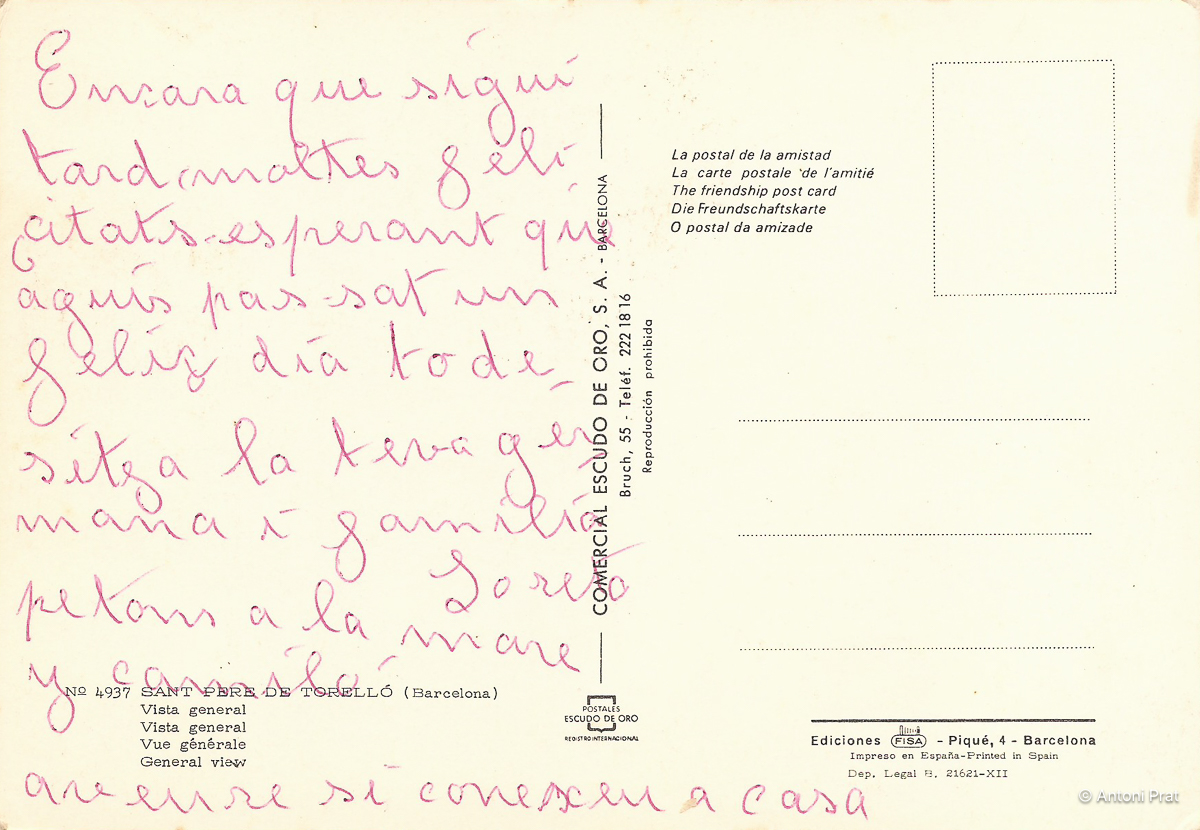 Encara que sigui
tard, moltes feli
citats-esperant que
aguis pas-sat un
feliz dia to de
sitga la teva ger
mana i familia
Loreto
petons a la mare
y camilo
a casa
La postal de la amistad
La carte postale de l'amitié
The friendship post card
Die Freundschaftskarte
O postal da amizade
COMERCIAL ESCUDO DE ORO, S. A. - BARCELONA
Bruch, 55 - Teléf. 222 18 16
Reproducción prohibida
Nº 4937 SANT PERE DE TORELLÓ (Barcelona)
Vista general
Vista general
Vue générale
General view
POSTALES
ESCUDO DE ORO
REGISTRO INTERNACIONAL
Ediciones FISA - Piqué, 4 - Barcelona
Impreso en España-Printed in Spain
Dep. Legal B. 21621-XII
© Antoni Prat